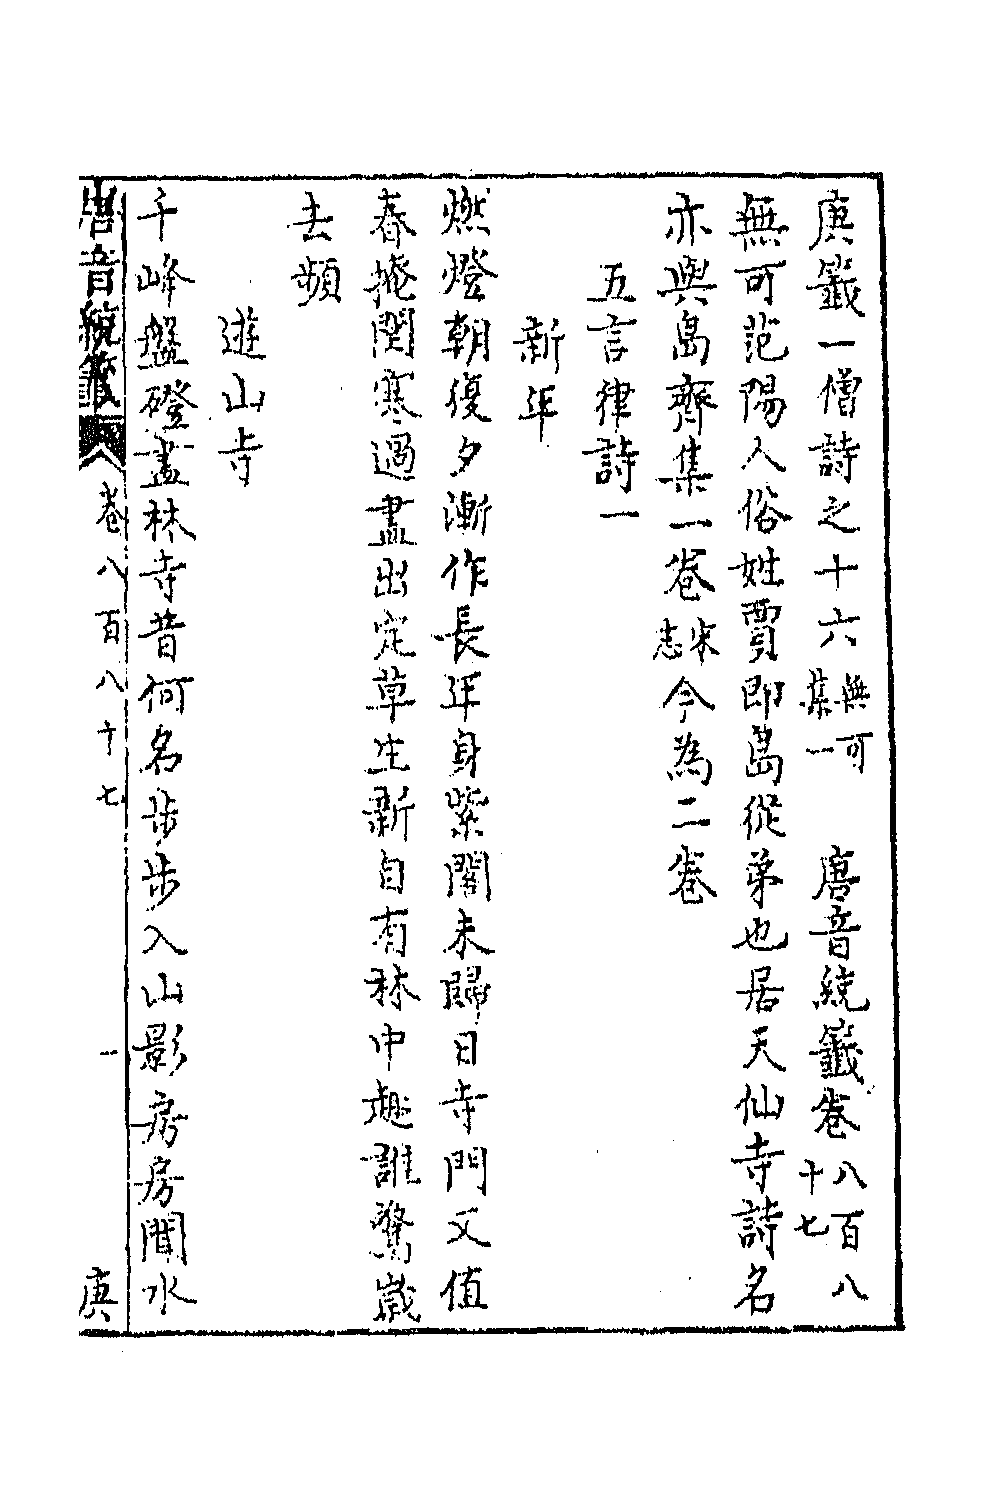 庚籤一僧詩之十六無可集一　唐音統籤卷八百八十七
無可范陽人俗姓賈即島從弟也居天仙寺詩名
亦與島齊集一卷宋志今為二卷
五言律詩一
新年
燃燈朝復夕漸作長年身紫閣未歸日寺門又值
春掩關寒過盡出定草生新自有林中趣誰驚歲
去頻
遊山寺
千峰盤磴盡林寺昔何名步步入山影房房聞水
唐音統籤　卷八百八十七　一　庚